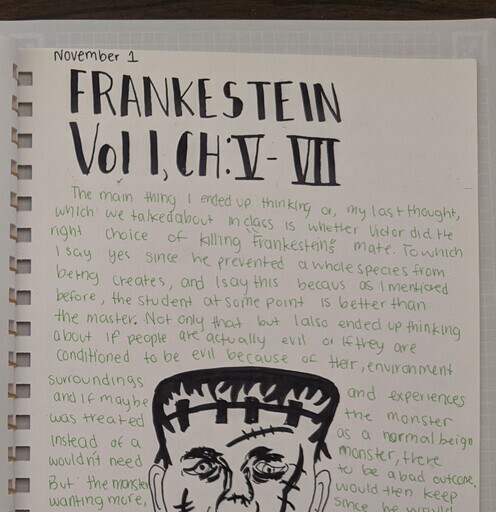 November 1
FRANKESTEIN
Vol I, CH: V - VII
The main thing I ended up thinking or, my last thought,
which we talked about in class is whether Victor did the
right choice of killing Frankesteins mate. To which
I say yes since he prevented a whole species from
being creates, and I say this becaus as I mentioed
before, the student at some point is better than
the master. Not only that but I also ended up thinking
about if people are actually evil or if they are
conditioned to be evil because of their, environment
surroundings and experiences
and if maybe the monster
was treated as a normal beign
instead of a monster, there
wouldn't need to be a bad outcome.
But the monster would then keep
wanting more, since he would